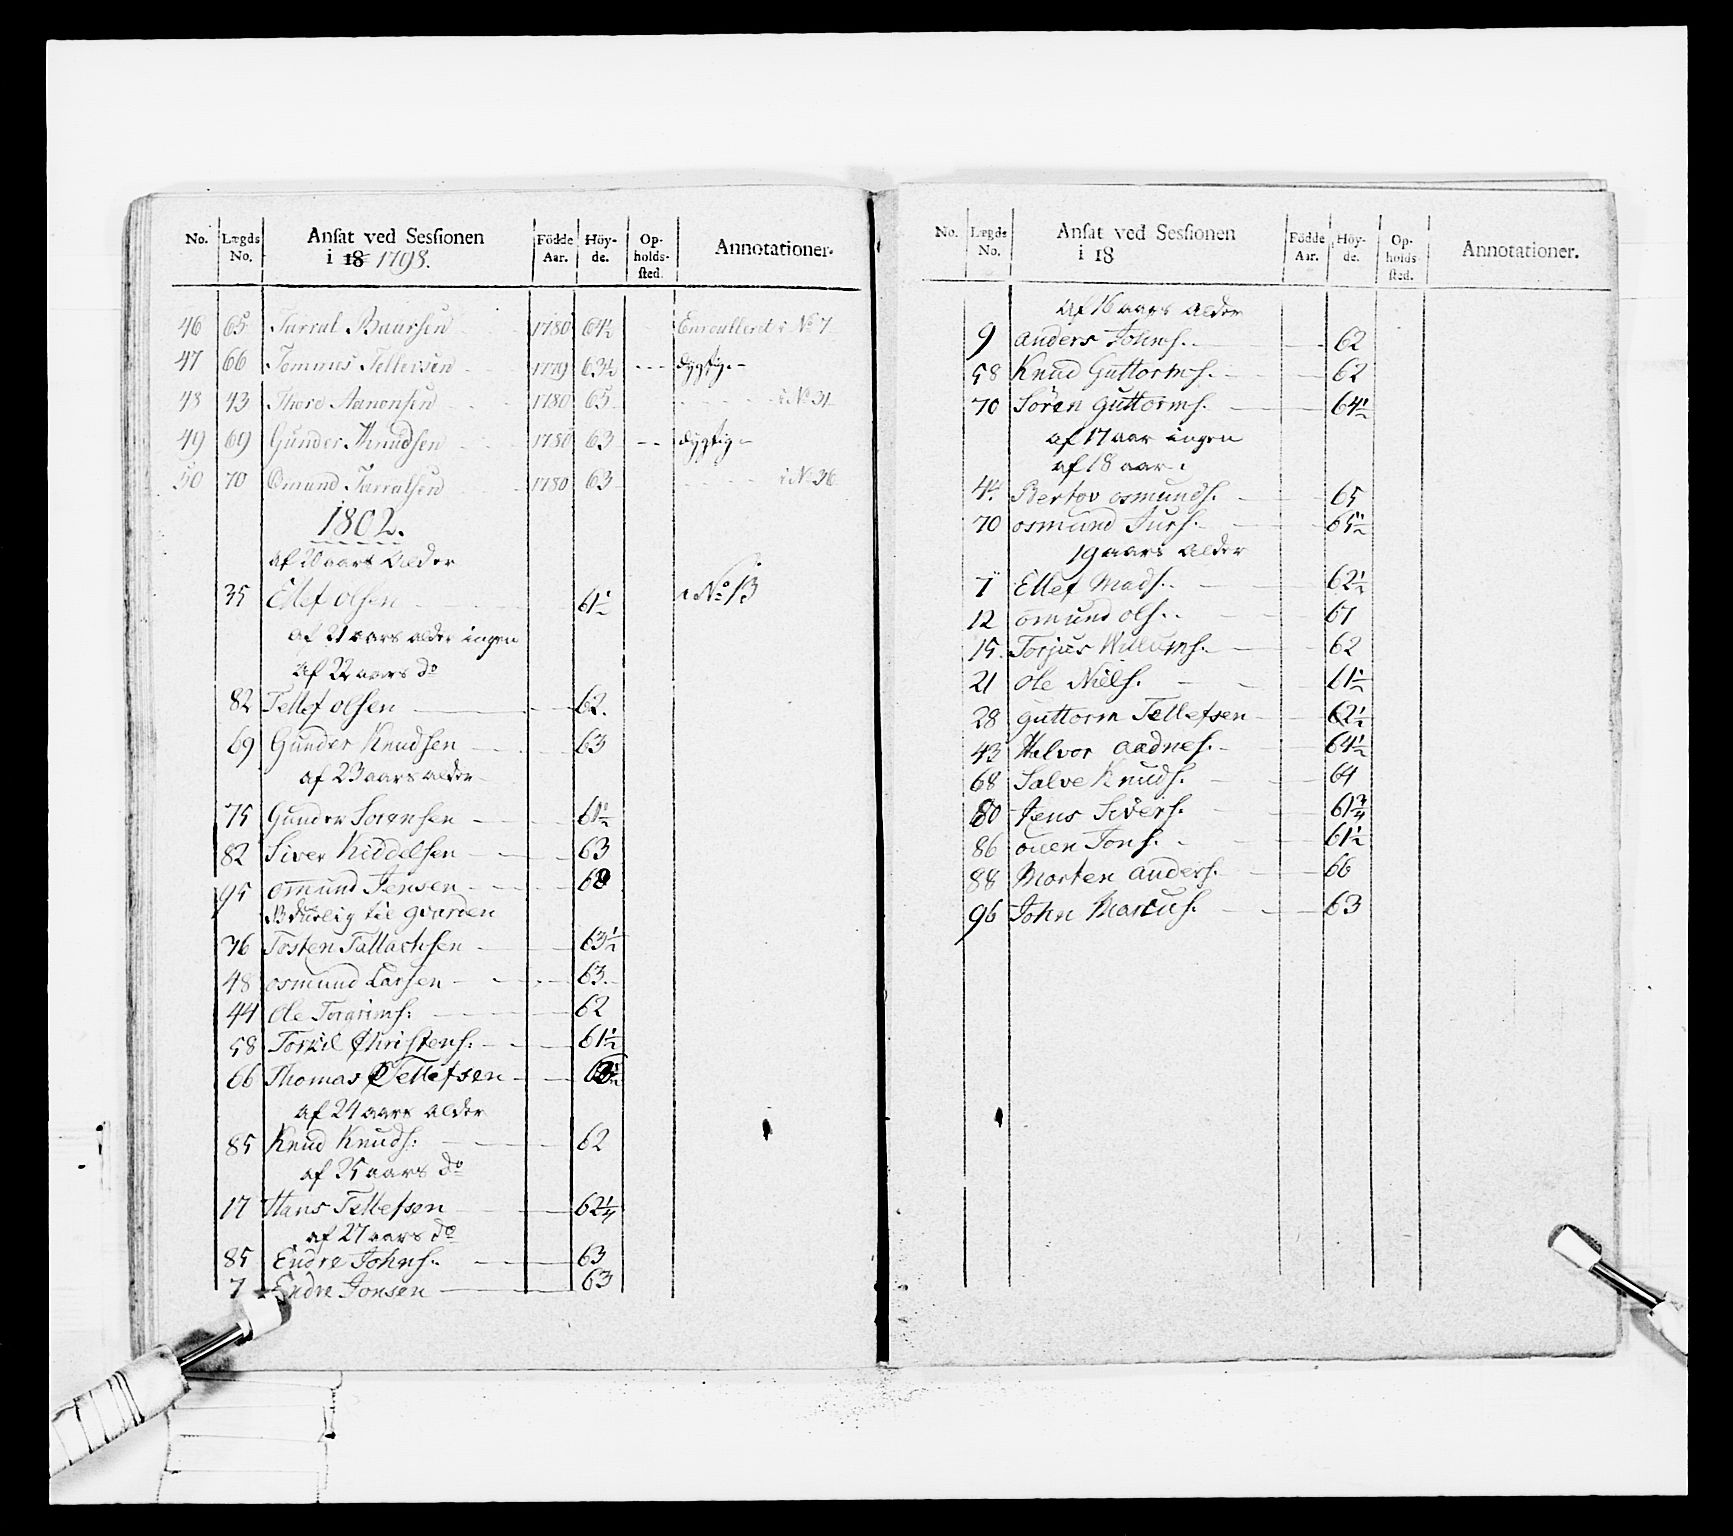 No. Lægds No. Ansat ved Sessionen i 18 1798. Födde Aar. Höyde. Opholds-sted. Annotationer.
46 65 Tarral Baarsen 1780 64½ Enroulleret i No 7
47 66 Tommes Tellevsen 1779 63½ dygtig
48 43 Thore Aanonsen 1780 65 i No 31
49 69 Gunder Knudsen 1780 63 dygtig
50 70 Omund Tarralsen 1780 63 i No 36
1802.
af 20 aars Alder
35 Ellef olsen 61½ i No 13
af 21 aars alder ingen
af 22 aars do
82 Tellef olsen 62.
69 Gunder Knudsen 63
af 23 aars alder
75 Gunder Sörensen 61½
82 Siver Kiddelsen 63
95 omund Jensen
NB duelig til Gvarden
36 Tosten Tallachsen 63½
48 osmund Larsen 63.
44 Ole 62
58 Torkil Christens: 61½
66 Thomas Tellefsen
af 24 aars alder
85 Knud Knuds: 62
af 25 aars do
17 Hans Tellefson 62¼
af 27 aars do
85 Endre Johns. 63
7 Endre Jonsen 63
No. Lægds No. Ansat ved Sessionen i 18 Födde Aar. Höyde. Opholds-sted. Annotationer.
af 16 aars alder
9 anders Johns. 62
58 Knud Guttorms. 62
70 Sören Guttorms. 64½
af 17 aar ingen
af 18 aar:
44 Bertov osmunds. 65
70 osmund Turs. 65½
19 aars alder
7 Ellef Mads. 62½
12 omund ols. 67
15. Torjus Willums. 62
21 Ole Niels. 61½
28 guttorm Tellefsen 62½
43 Halvor aadnes. 64½
68 Salve Knuds. 64
80 Jens Sivers. 61¾
86 ouen Jons. 61½
88 Morten anders. 66
96 John Marcus. 63